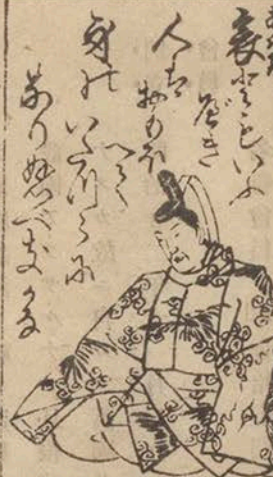 哀ともいふ
べき
人はおもほ
へて
身のいたづらに
なりぬべきかな